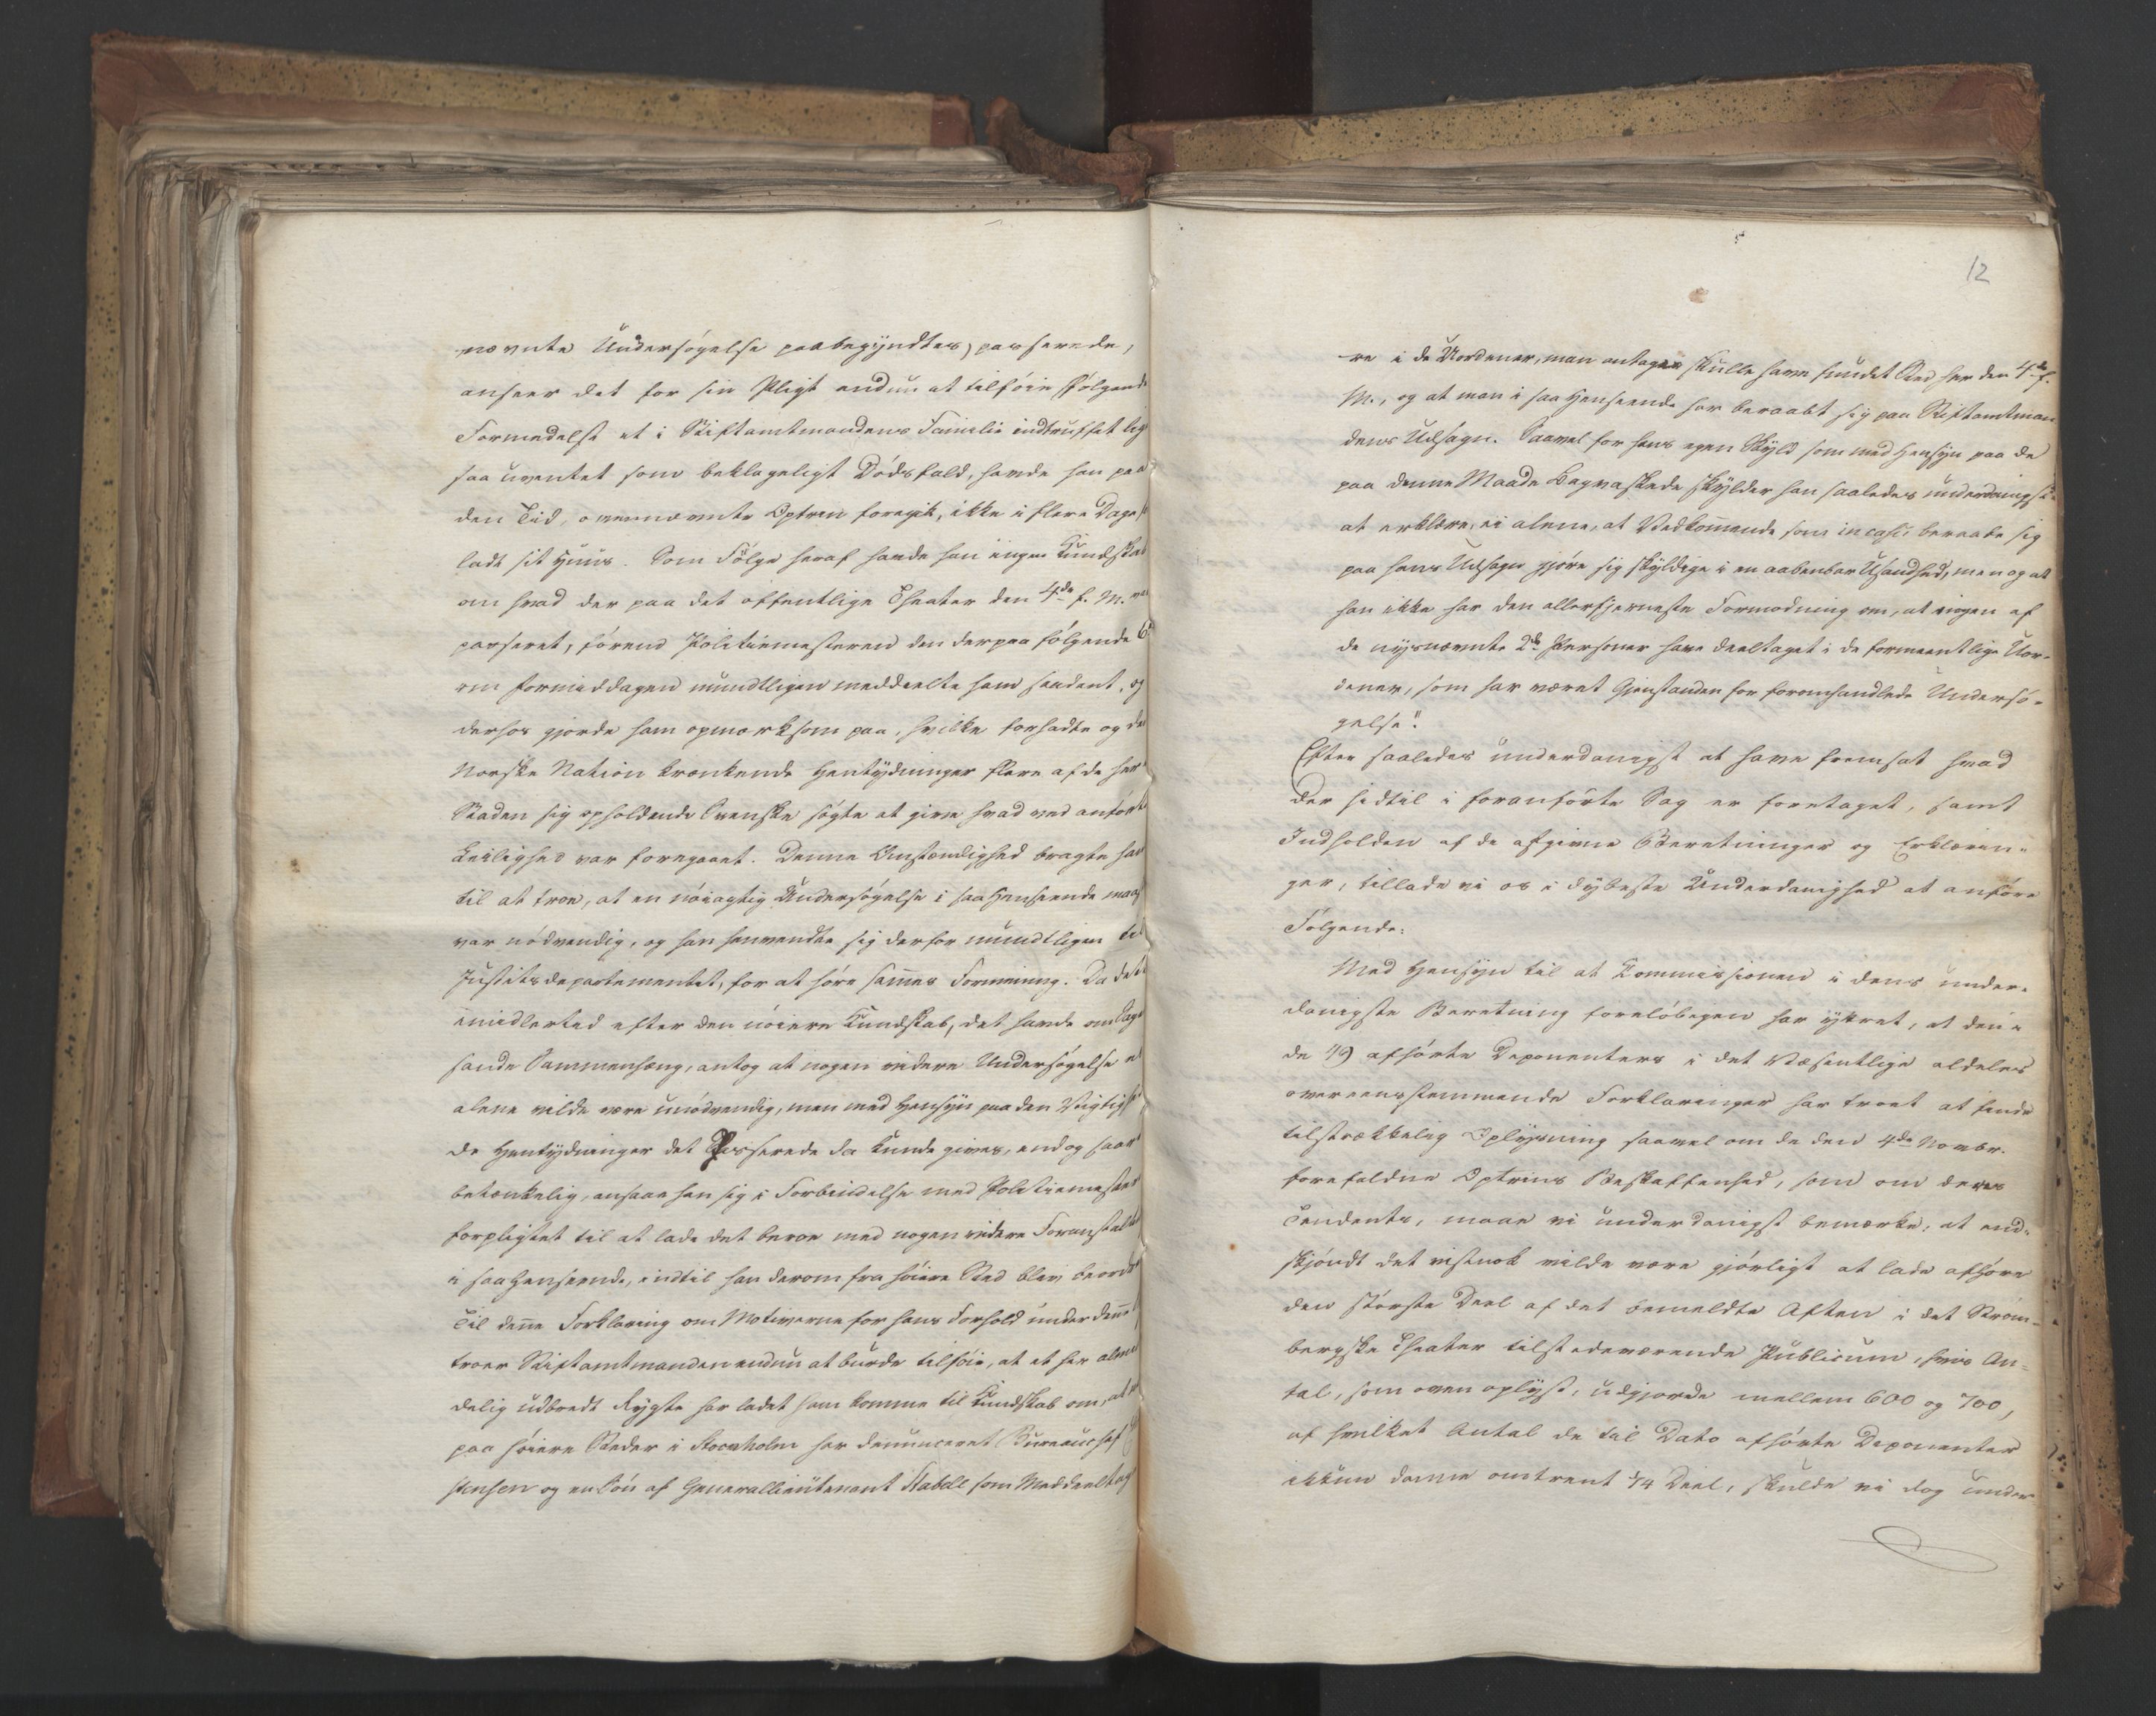 nævnte Undersøgelse paabegyndtes) passerede,
anseer det for sin Pligt endnu at tilføie Følgende
Formedelst et i Stiftamtmandens Familie indtruffet lige
saa uventet som beklageligt Dødsfald, havde han paa
den Tid, ovennævnte Optrin foregik, ikke i flere Dage
ladt sit Huus. Som Følge heraf havde han ingen Kundskab
om hvad der paa det offentlige Theater den 4de f. M. var
passeret, førend Politiemesteren den derpaa følgende 6te
om Formiddagen mundtligen meddeelte ham saadant, og
derhos gjorde ham opmærksom paa, hvilke forhadte og den
Norske Nation krænkende Hentydninger flere af de her i
Staden sig opholdende Svenske søgte at give hvad ved anførte
Leilighed var foregaaet. Denne Omstændighed bragte ham
til at troe, at en nøiagtig Undersøgelse i saa Henseende
var nødvendig, og han henvendte sig derfor mundtligen til
Justitsdepartementet, for at høre sammes Formening. Da dette
imidlertid efter den nøiere Kundskab, det havde om Sagens
sande Sammenhæng, antog at nogen videre Undersøgelse ei
alene vilde være unødvendig, men med Hensyn paa den Vigtighed
de Hentydninger det Passerede da kunde gives, endog saare
betænkelig, ansaae han sig i Forbindelse med Politiemesteren
forpligtet til at lade det beroe med nogen videre Foranstaltning
i saa Henseende, indtil han derom fra høiere Sted blev beordret
Til denne Forklaring om Motiverne for hans Forhold under denne
troer Stiftamtmanden endnu at burde tilføie, at et her almin
delig udbredt Rygte har ladet ham komme til Kundskab om, at
paa høiere Steder i Stockholm har denunceret Bureauchef
stensen og en Søn af Generallieutenant Stabell som Meddeeltag
12
re i de Uordener, man antager skulle have fundet Sted her den 4de f.
M., og at man i saa Henseende har beraabt sig paa Stiftamtman
dens Udsagn. Saavel for hans egen Skyld som med Hensyn paa de
paa denne Maade Bagvaskede skylder han saaledes underdanigst
at erklære, ei alene, at Vedkommende som in casu beraabe sig
paa hans Udsagn gjøre sig skyldige i en aabenbar Usandhed, men og at
han ikke har den allerfjerneste Formodning om, at nogen af
de nysnævnte 2de Personer have deeltaget i de formeentlige Uor-
dener, som har været Gjenstanden for foromhandlede Undersø-
gelse".
Efter saaledes underdanigst at have fremsat hvad
der hidtil i foranførte Sag er foretaget, samt
Indholden af de afgivne Beretninger og Erklærin-
ger, tillade vi os i dybeste Underdanighed at anføre
Følgende:
Med Hensyn til at Kommissionen i dens under-
danigste Beretning foreløbigen har yttret, at den i
de 49 afhørte Deponenters i det Væsentlige aldeles
overeensstemmende Forklaringer har troet at finde
tilstrækkelig Oplysning saavel om de den 4de Novbr.
forefaldne Optrins Beskaffenhed, som om deres
Tendents, maae vi underdanigst bemærke, at end-
skjøndt det vistnok vilde være gjørligt at lade afhøre
den største Deel af det bemeldte Aften i det Strøm-
bergske Theater tilstedeværende Publicum, hvis An-
tal, som oven oplyst, udgjorde mellem 600 og 700,
af hvilket Antal de til Dato afhørte Deponenter
ikkun danne omtrent 1/14 Deel, skulde vi dog under